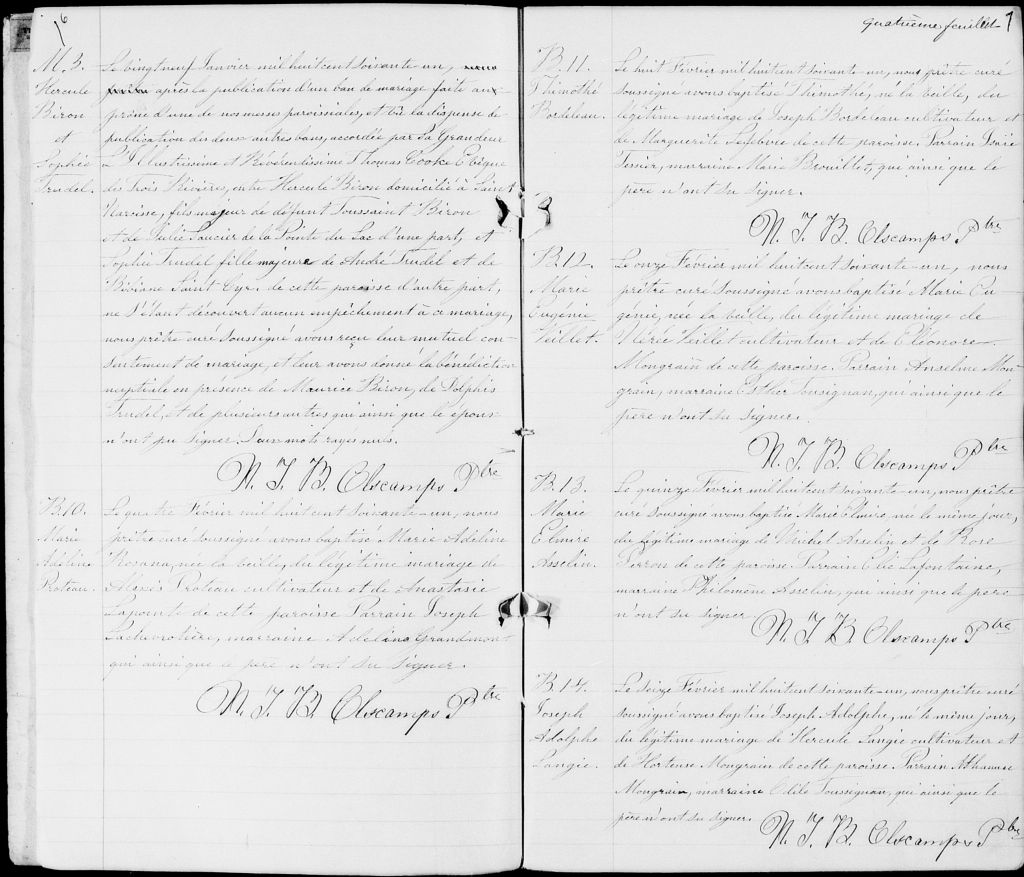 6
M. 3.
Hercule
Biron
et
Sophie
Trudel.
Le vingt neuf Janvier mil huit cent soixante-un,
après la publication d'un ban de mariage faite au
prône d'une de nos messes paroissiales, et vû la dispense de
publication des deux autres bans, accordée par Sa Grandeur
L'Illustrissime et Révérendissime Thomas Cooke Evêque
des Trois Rivières, entre Hercule Biron domicilié à Saint
Narcisse, fils majeur de défunt Toussaint Biron
et de Julie Saucier de la Pointe du Lac d'une part, et
Sophie Trudel fille majeure de André Trudel et de
Bibiane Saint Cyr. de cette paroisse d'autre part,
ne s'étant découvert aucun empêchement à ce mariage,
nous prêtre curé soussigné avons reçu leur mutuel con-
sentement de mariage, et leur avons donné la bénédiction
nuptiale en présence de Maurice Biron, de Dolphis
Trudel, et de plusieurs autres qui ainsi que le époux
n'ont pu signer. Deux mots rayés nuls.
N. T. B. Olscamps Ptre
B. 10.
Marie
Adéline
Proteau.
Le quatre Février mil huit cent soixante-un, nous
prêtre curé soussigné avons baptisé Marie Adéline
Rosana, née la veille, du légitime mariage de
Alexis Proteau cultivateur et de Anastasie
Lapointe de cette paroisse Parrain Joseph
Lachevrotière, marraine Adéline Grandmont
qui ainsi que le père n'ont su signer.
N. T. B. Olscamps Ptre
quatrième feuillet 7
B. 11.
Thimothé
Bordeleau.
Le huit Février mil huit cent soixante-un, nous prêtre curé
soussigné avons baptisé Thimothé, né la veille, du
légitime mariage de Joseph Bordeleau cultivateur et
de Marguerite Lefebvre de cette paroisse. Parrain Isaïe
Tessier, marraine Marie Brouillet, qui ainsi que le
père n'ont su signer.
N. T. B. Olscamps Ptre
B. 12.
Marie
Eugénie
Veillet.
Le onze Février mil huit cent soixante-un, nous
prêtre curé soussigné avons baptisé Marie Eu-
génie, née la veille, du légitime mariage de
Nérée Veillet cultivateur et de Eléonore
Mongrain de cette paroisse. Parrain Anselme Mon-
grain, marraine Esther Tousignan, qui ainsi que le
père n'ont su signer.
N. T. B. Olscamps Ptre
B. 13.
Marie
Elmire
Asselin.
Le quinze Février mil huit cent soixante-un, nous prêtre
curé soussigné avons baptisé Marie Elmire, née le même jour,
du légitime mariage de Asselin et de Rose
Perron de cette paroisse Parrain Elie Lafontaine,
marraine Philomène Asselin, qui ainsi que le père
n'ont su signer
N. T. B. Olscamps Ptre
B. 14.
Joseph
Adolphe
Langie.
Le seize Février mil huit cent soixante-un, nous prêtre curé
soussigné avons baptisé Joseph Adolphe, né le même jour,
du légitime mariage de Hercule Langie cultivateur et
de Hortense Mongrain de cette paroisse. Parrain Athanase
Mongrain, marraine Odile Toussignan, qui ainsi que le
père n'ont su signer.
N. T. B. Olscamps Ptre